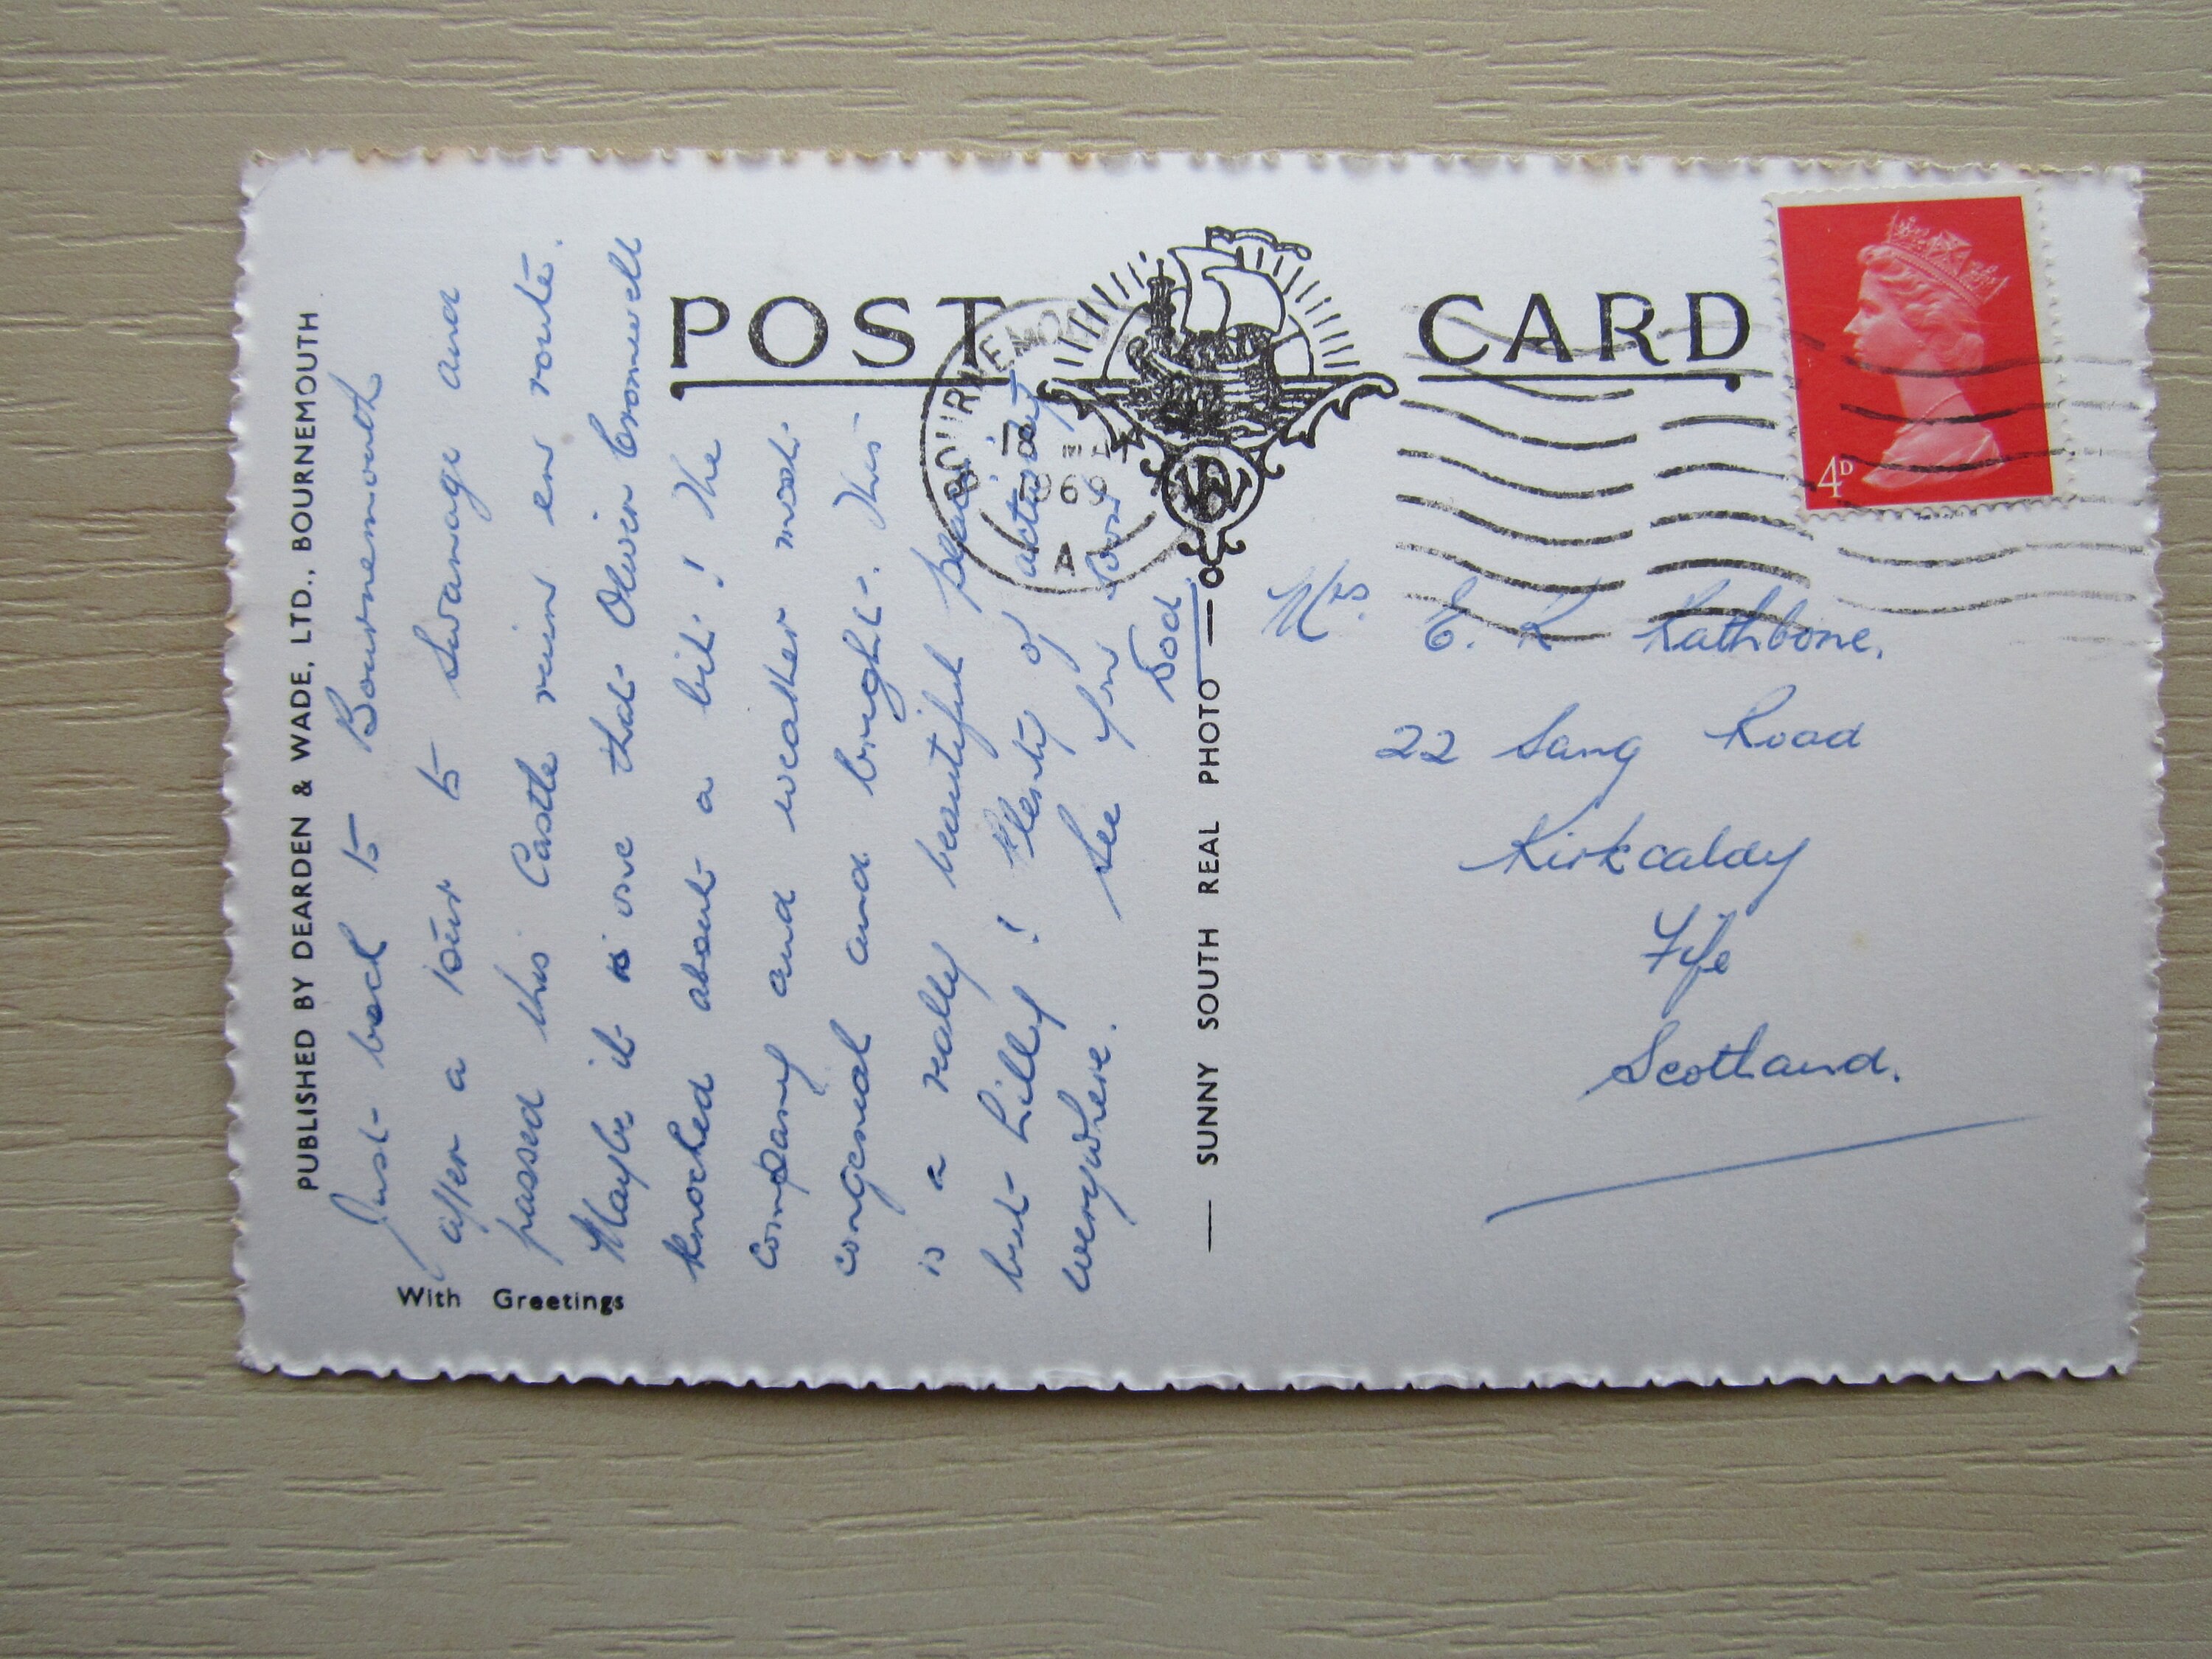 PUBLISHED BY DEARDEN & WADE, LTD., BOURNEMOUTH
With Greetings
Just back to Bournemouth
after a tour to Swanage and
passed this Castle ruins en route.
Maybe it is one that Oliver Cromwell
knocked about a bit! The
company and weather most
congenial and bright. This
is a really beautiful place
but hilly! Plenty of activity
everywhere. See you soon
Dod
POST CARD
BOURNEMOUTH
A
SUNNY SOUTH REAL PHOTO
4D
Mrs. E. K Rathbone.
22 Sang Road
Kirkcaldy
Fife
Scotland.